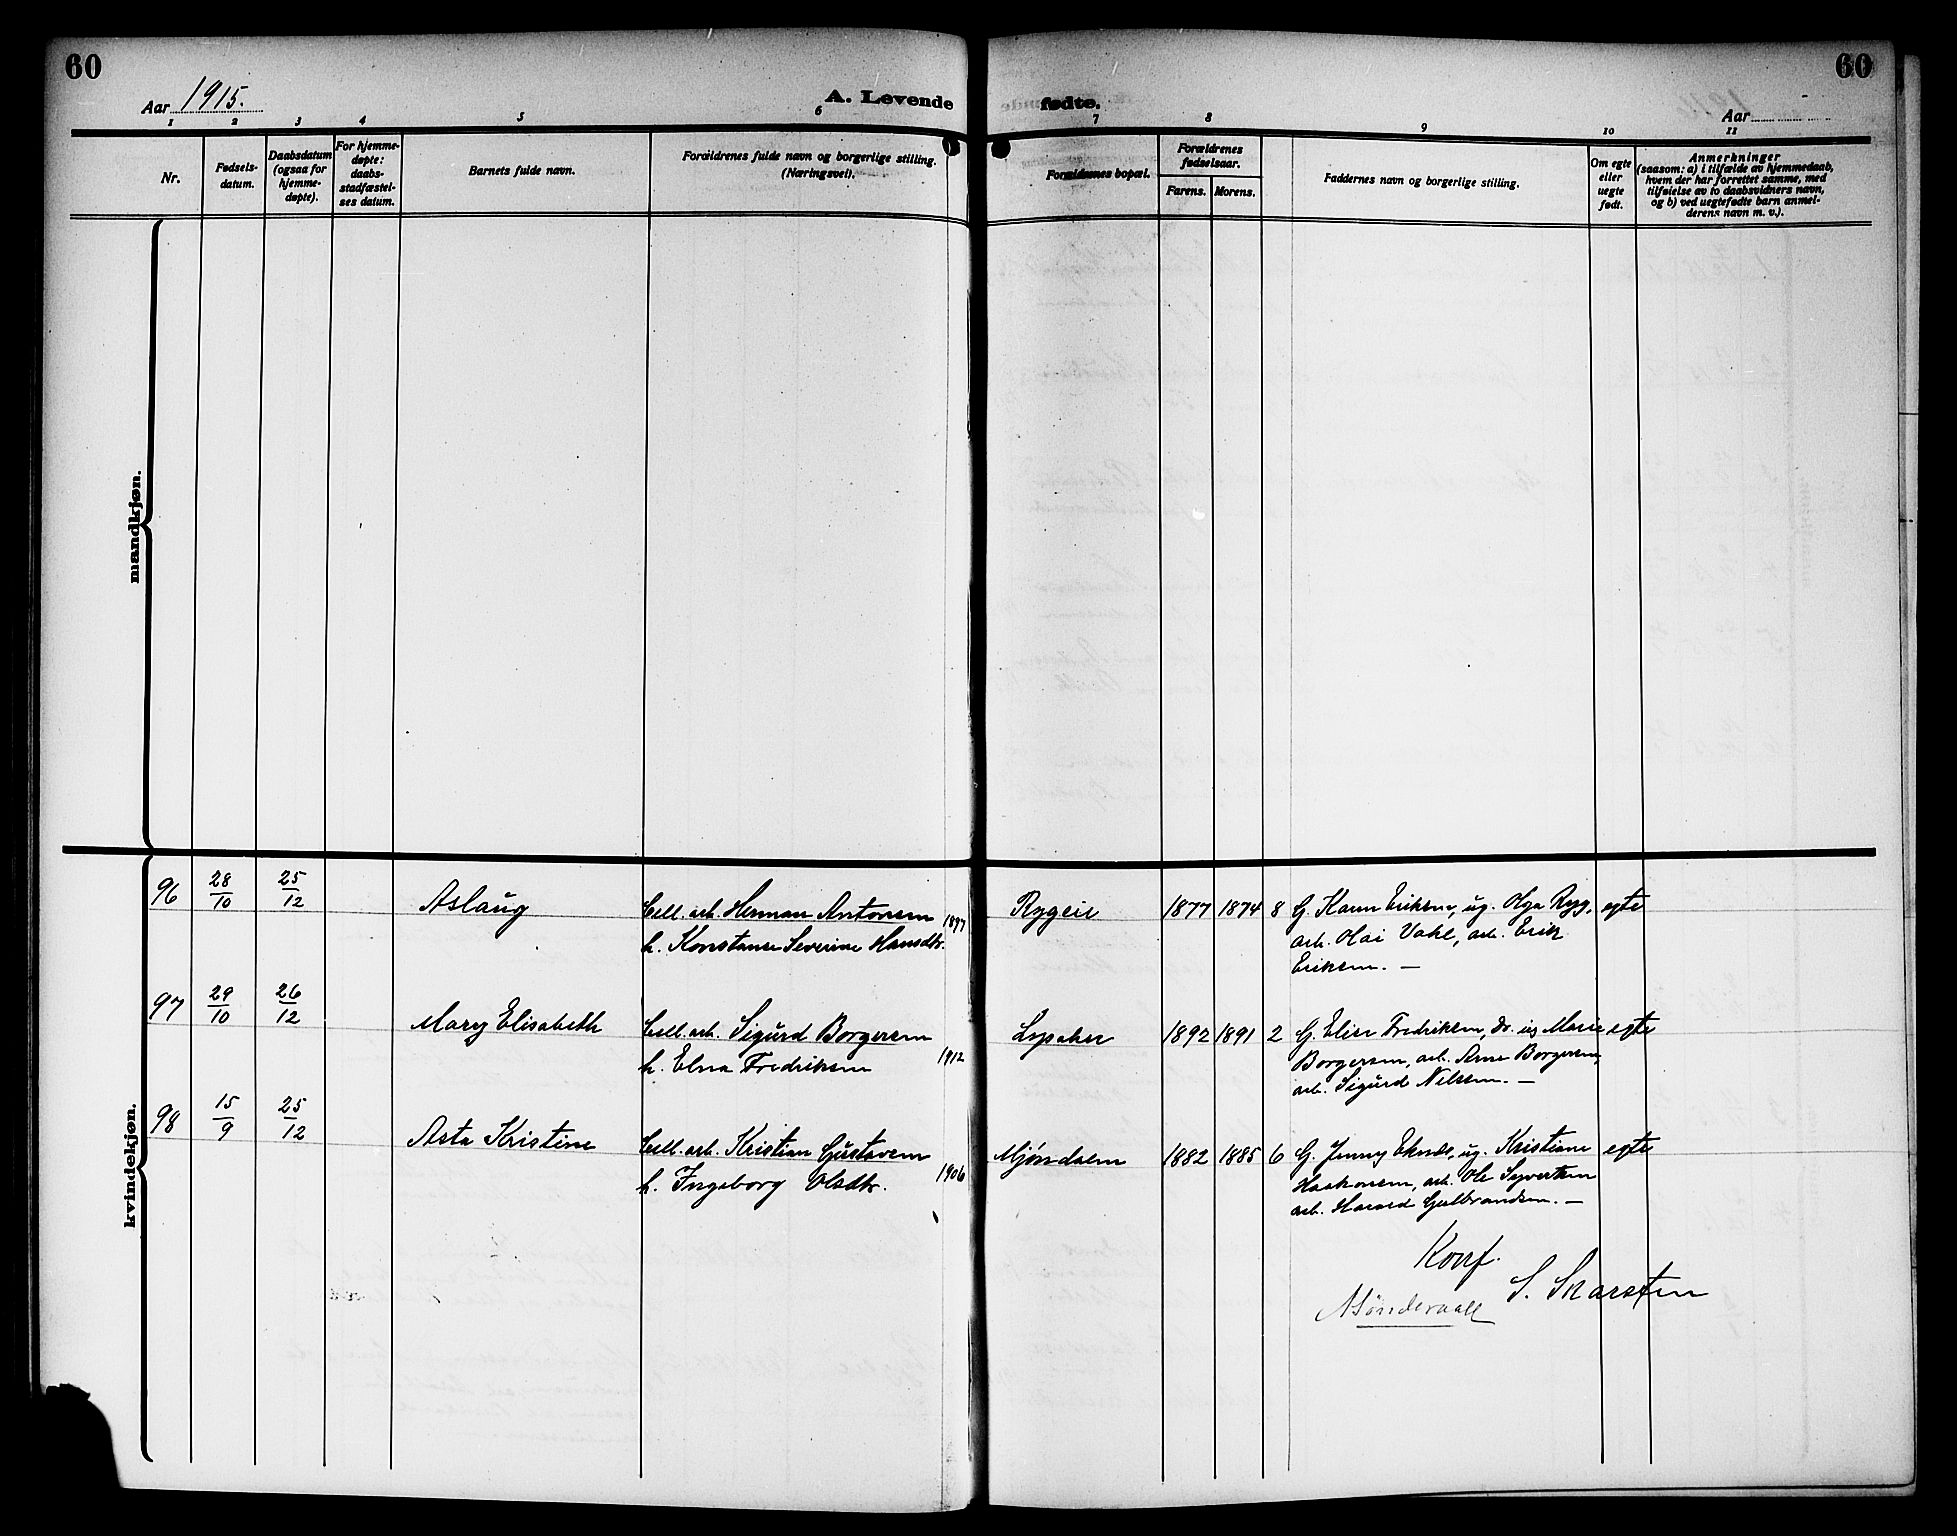 60
60
Aar 1915.
A. Levende fødte.
Aar
1 2 3 4 5 6 7 8 9 10 11
Nr.
Fødsels-
datum.
Daabsdatum
(ogsaa for
hjemme-
døpte).
For hjemme-
døpte:
daabs-
stadfæstel-
ses datum.
Barnets fulde navn.
Forældrenes fulde navn og borgerlige stilling.
(Næringsvei).
Forældrenes bopæl.
Forældrenes
fødselsaar.
Farens. Morens.
Faddernes navn og borgerlige stilling.
Om egte
eller
uegte
født.
Anmerkninger
(saasom: a) i tilfælde av hjemmedaab,
hvem der har forrettet samme, med
tilføielse av to daabsvidners navn,
og b) ved uegtefødte barn anmel-
derens navn m. v.).
mandkjøn.
kvindekjøn.
96 28/10 25/12 Aslaug Cell. arb. Herman Antonsen 1897 Rygeie 1877 1874 8 G. Karen Eriksen, ug. Olga Ryg, egte
h. Konstanse Severine Hansdtr. arb. Olai Vake, arb. Erik
Eriksen. —
97 29/10 26/12 Mary Elisabeth Cell. arb. Sigurd Borgersen Lysaker 1892 1891 2 G. Elise Fredriksen, ug. Marie egte
h. Elna Fredriksen 1912 Borgersen, arb. Arne Borgersen,
arb. Sigurd Nilsen. —
98 15/9 25/12 Asta Kristine Cell. arb. Kristian Gustavsen Mjøndalen 1882 1885 6 G. Jenny ug. Kristiane egte
h. Ingeborg Olsdtr. 1906 Haakonsen, arb. Ole Syvertsen
arb. Harald Gulbrandsen. —
Konf.
S. Skarsten